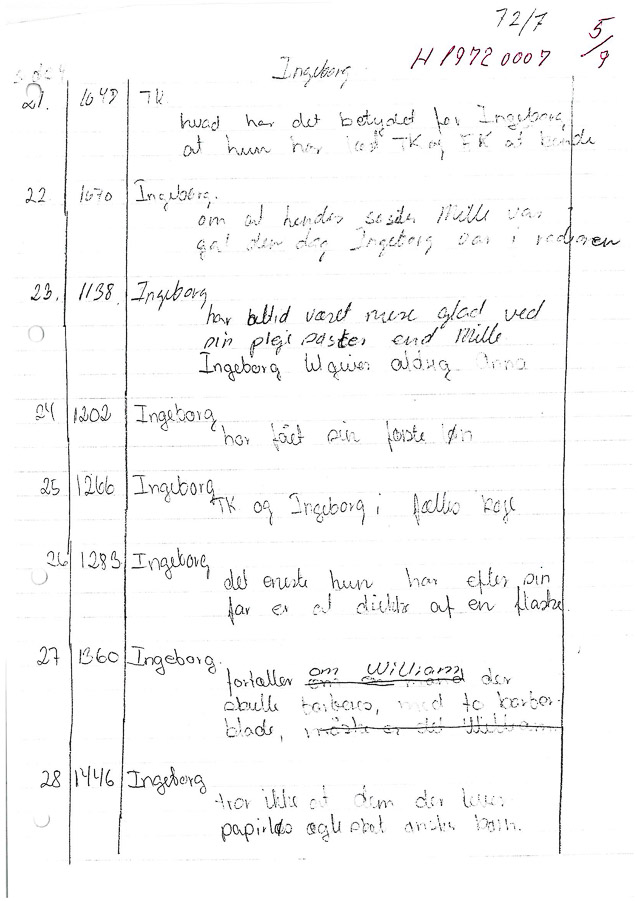 72/7
5/9
H 1972 0007
Ingeborg
21. 1048 TK
hvad har det betydet for Ingeborg
at hun har TK og
22 1070 Ingeborg.
om at hendes søster Mille var
gal den dag Ingeborg var i
23. 1138 Ingeborg
har altid været mere glad ved
sin pleje søster end Mille
Ingeborg aldrig Anna
24 1202 Ingeborg
har fået sin første løn
25 1266 Ingeborg
TK og Ingeborg i fælles køje
26 1283 Ingeborg
det eneste hun har efter sin
far er at drikke af en flaske.
27 1360 Ingeborg.
fortæller om William der
skulle barberes, med to barber-
blade, måske er det William
28 1446 Ingeborg
tror ikke at dem der lever
papirløs også skal ønske børn.